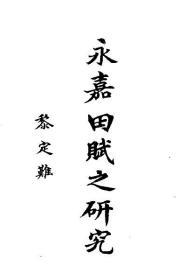 永嘉田賦之研究
黎定難